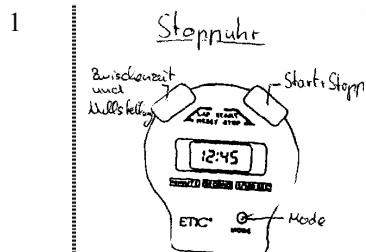 1
Stoppuhr
Zwischenzeit
und
Nullstellung
Start+Stopp
LAP START
RESET STOP
12:45
ETIC
Mode
MODE